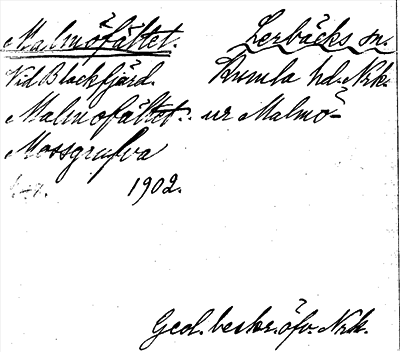 Malmöfältet. Lerbäcks sn.
Vid Blackfjärd. Kumla hd. Nrk.
Malmöfältet ur Malmö-
Mossgrufva
1902.
Geol. beskr. öfv. Nrk.